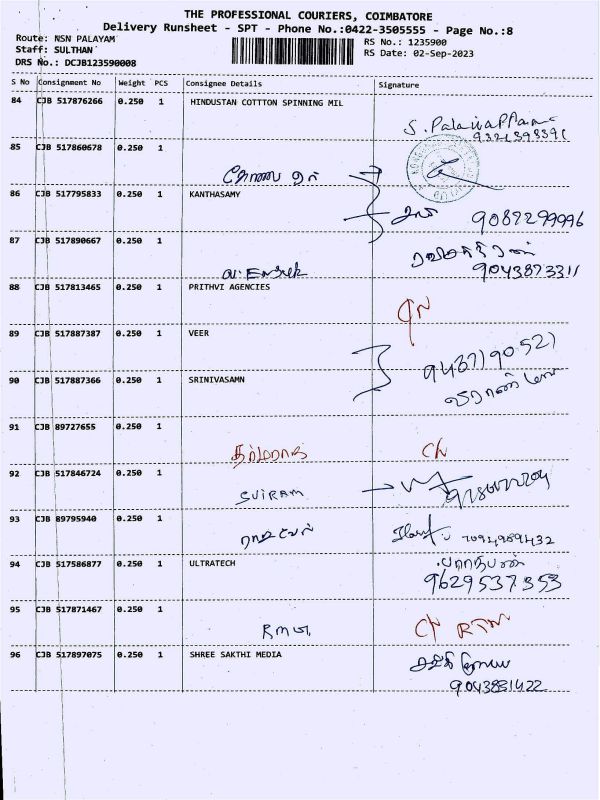 THE PROFESSIONAL COURIERS, COIMBATORE
Delivery Runsheet - SPT - Phone No.:0422-3505555 - Page No.:8
Route: NSN PALAYAM
Staff: SULTHAN
DRS No.: DCJB123590008
RS No.: 1235900
RS Date: 02-Sep-2023
S No Consignment No Weight PCS Consignee Details Signature
84 CJB 517876266 0.250 1 HINDUSTAN COTTTON SPINNING MIL
S. Palaniappan
9321398391
85 CJB 517860678 0.250 1
86 CJB 517795833 0.250 1 KANTHASAMY
9087299996
87 CJB 517890667 0.250 1
9043873311
88 CJB 517813465 0.250 1 PRITHVI AGENCIES
CN
89 CJB 517887387 0.250 1 VEER
9437190527
90 CJB 517887366 0.250 1 SRINIVASAMN
91 CJB 89727655 0.250 1
CN
92 CJB 517846724 0.250 1
SVIRAM
93 CJB 89795940 0.250 1
7094989432
94 CJB 517586877 0.250 1 ULTRATECH
9629537353
95 CJB 517871467 0.250 1
CN RTN
96 CJB 517897075 0.250 1 SHREE SAKTHI MEDIA
9043831422